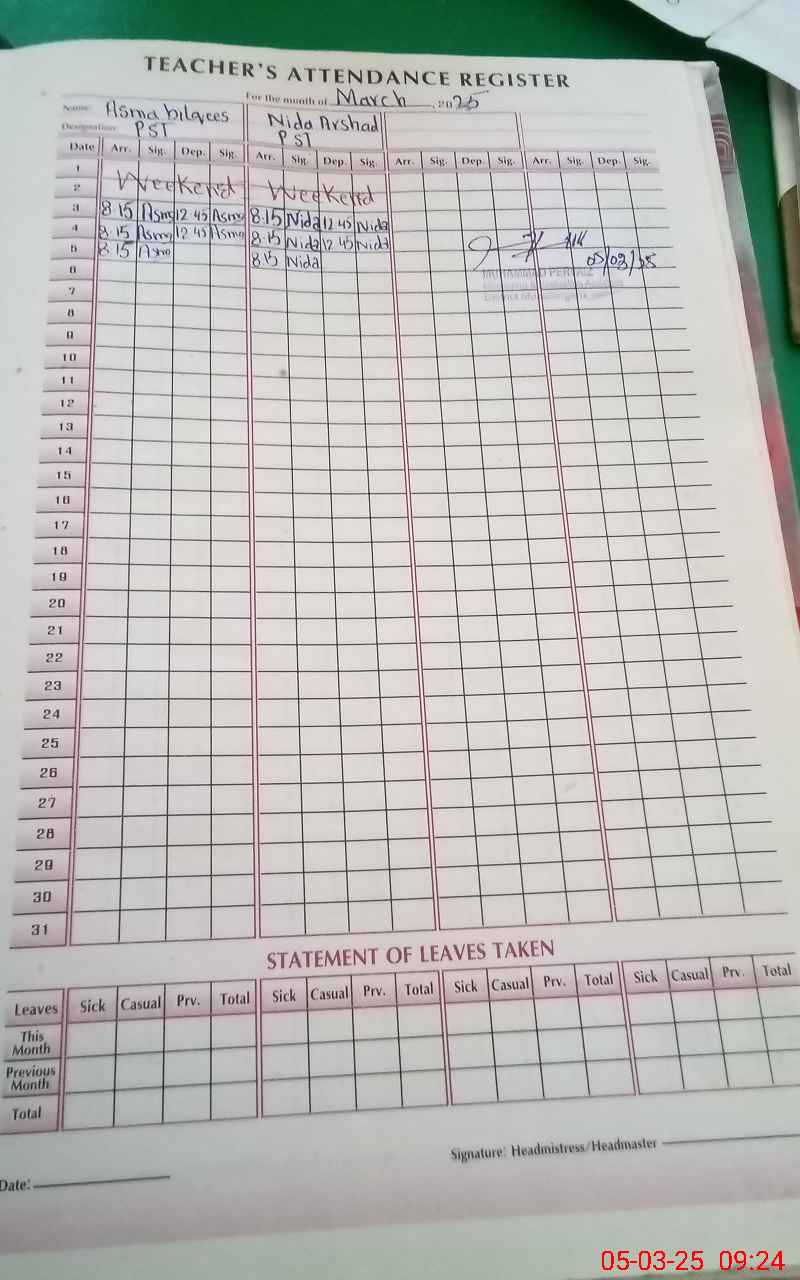 TEACHER'S ATTENDANCE REGISTER
For the month of March, 2025
Name: Asma bilqees Nida Arshad
Designation: PST PST
Date Arr. Sig. Dep. Sig. Arr. Sig. Dep. Sig. Arr. Sig. Dep. Sig. Arr. Sig. Dep. Sig.
1
2 Weekend Weekend
3 8.15 Asma 12 45 Asma 8.15 Nida 12 45 Nida
4 8.15 Asma 12 45 Asma 8.15 Nida 12 45 Nida
5 8.15 Asma 8.15 Nida 05/03/25
6 MUHAMMAD PERVAIZ
7
8
9
10
11
12
13
14
15
16
17
18
19
20
21
22
23
24
25
26
27
28
29
30
31
STATEMENT OF LEAVES TAKEN
Leaves Sick Casual Prv. Total Sick Casual Prv. Total Sick Casual Prv. Total Sick Casual Prv. Total
This Month
Previous Month
Total
Signature: Headmistress/Headmaster
Date:
05-03-25 09:24